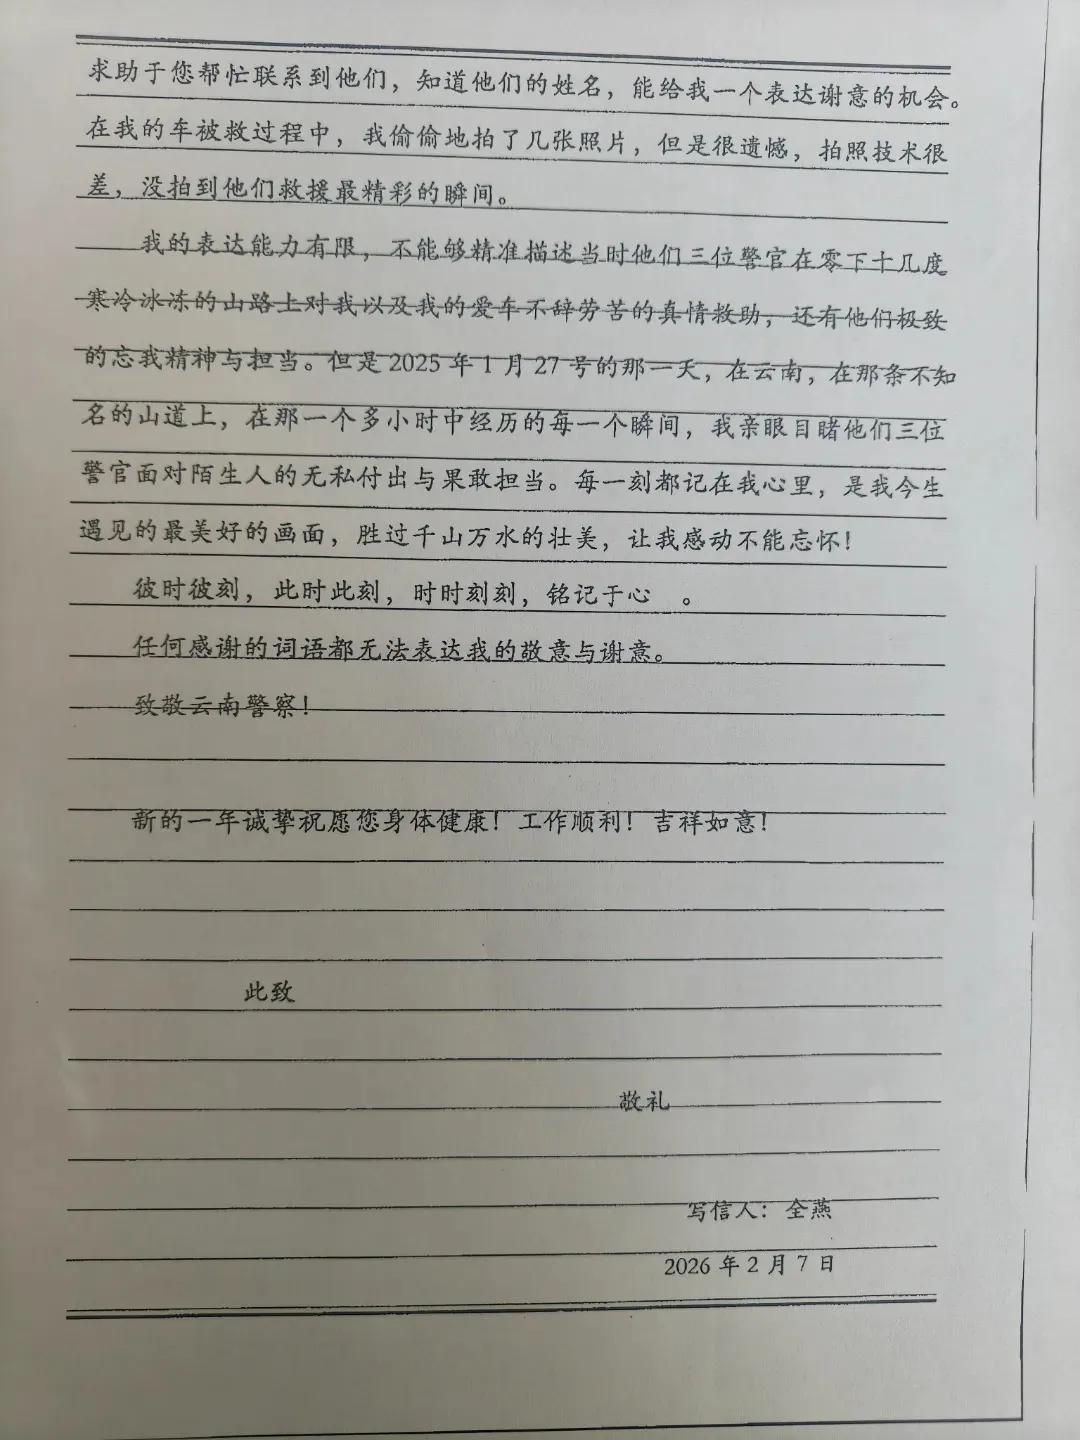 求助于您帮忙联系到他们，知道他们的姓名，能给我一个表达谢意的机会。
在我的车被救过程中，我偷偷地拍了几张照片，但是很遗憾，拍照技术很
差，没拍到他们救援最精彩的瞬间。
我的表达能力有限，不能够精准描述当时他们三位警官在零下十几度
寒冷冰冻的山路上对我以及我的爱车不辞劳苦的真情救助，还有他们极致
的忘我精神与担当。但是 2025 年 1 月 27 号的那一天，在云南，在那条不知
名的山道上，在那一个多小时中经历的每一个瞬间，我亲眼目睹他们三位
警官面对陌生人的无私付出与果敢担当。每一刻都记在我心里，是我今生
遇见的最美好的画面，胜过千山万水的壮美，让我感动不能忘怀！
彼时彼刻，此时此刻，时时刻刻，铭记于心 。
任何感谢的词语都无法表达我的敬意与谢意。
致敬云南警察！
新的一年诚挚祝愿您身体健康！工作顺利！吉祥如意！
此致
敬礼
写信人：全燕
2026 年 2 月 7 日